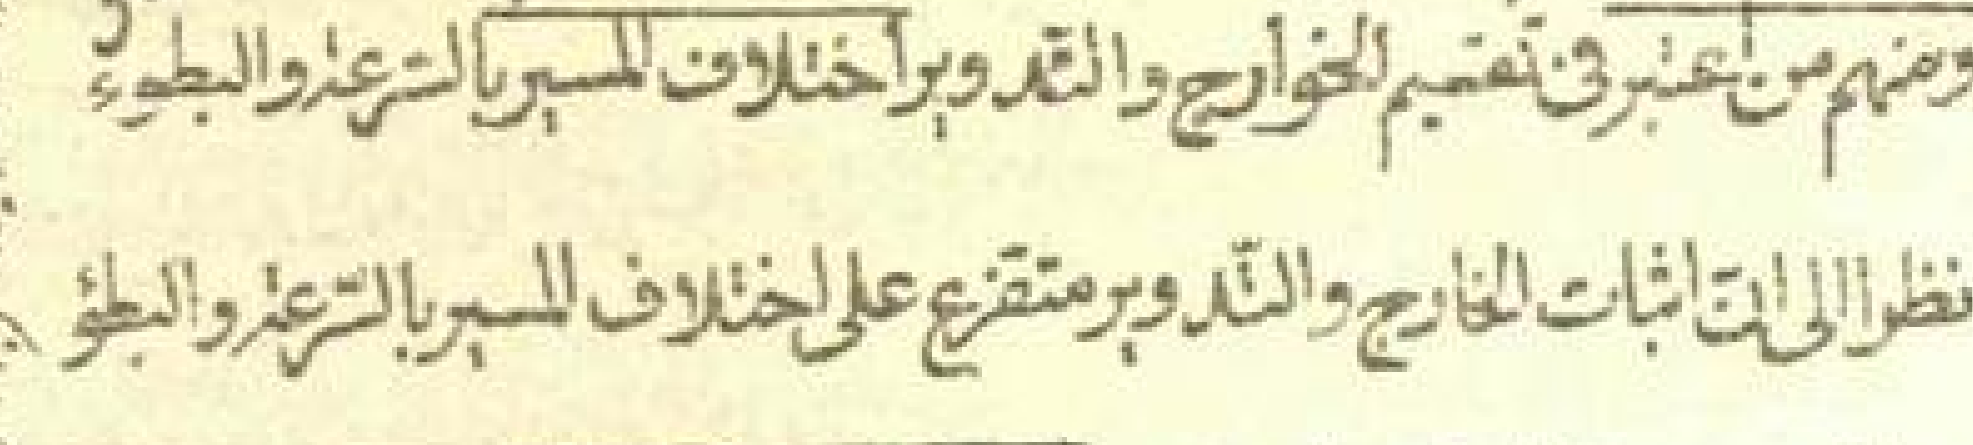 ومنهم من اعتبر في تعميم الخوارج والتدوير اختلاف المسير بالسرعة والبطوء
نظرا الى ان اثبات الخارج والتدوير متفرع على اختلاف المسير بالسرعة والبطؤ